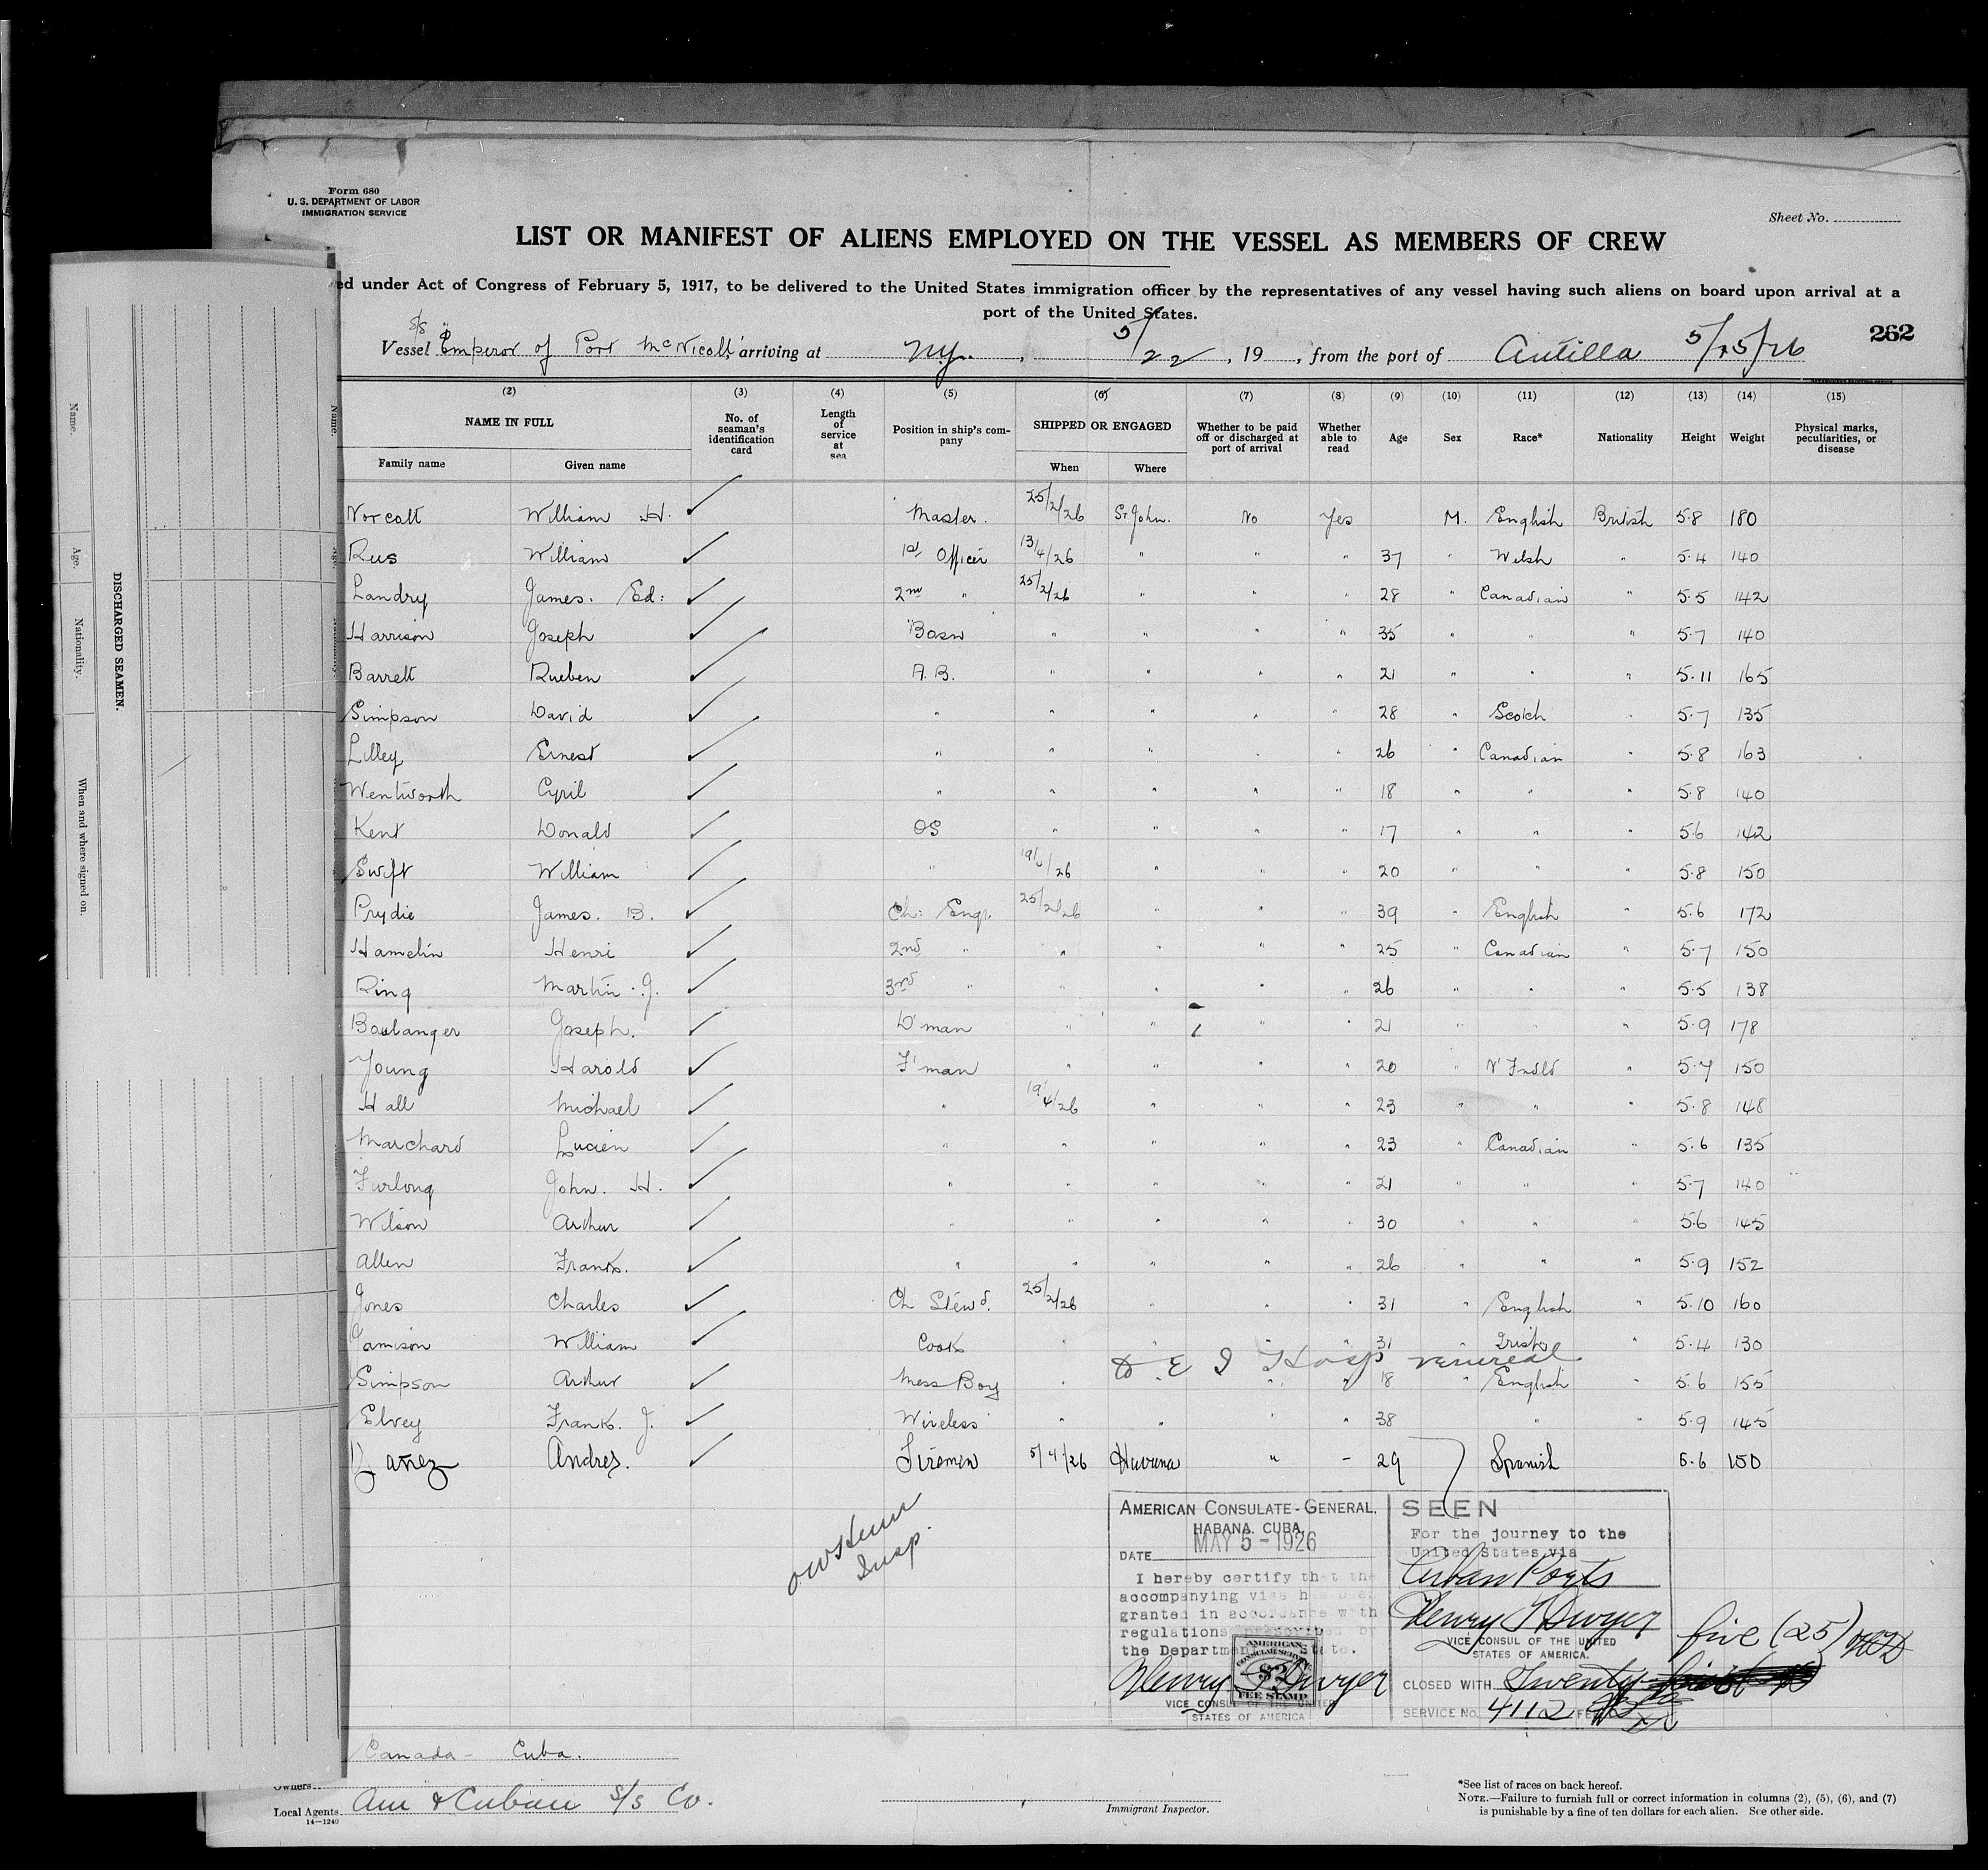 Form 680
U. S. DEPARTMENT OF LABOR
IMMIGRATION SERVICE
Sheet No.
LIST OR MANIFEST OF ALIENS EMPLOYED ON THE VESSEL AS MEMBERS OF CREW
ed under Act of Congress of February 5, 1917, to be delivered to the United States immigration officer by the representatives of any vessel having such aliens on board upon arrival at a
port of the United States.
262
Vessel S/S "Emperor of Port McNicoll" arriving at N.Y., 5/22, 19 , from the port of Antilla 5/15/26
(2) (3) (4) (5) (6) (7) (8) (9) (10) (11) (12) (13) (14) (15)
NAME IN FULL No. of seaman's identification card Length of service at sea Position in ship's company SHIPPED OR ENGAGED Whether to be paid off or discharged at port of arrival Whether able to read Age Sex Race* Nationality Height Weight Physical marks, peculiarities, or disease
Family name Given name When Where
Norcott William H. Master. 25/2/26 St John. No Yes M. English British 5.8 180
Rees William 1st Officer 13/4/26 " " " 37 " Welsh " 5.4 140
Landry James. Ed: 2nd " 25/2/26 " " " 28 " Canadian " 5.5 142
Harrison Joseph Bosn " " " " 35 " " " 5.7 140
Barrett Rueben A.B. " " " " 21 " " " 5.11 165
Simpson David " " " " " 28 " Scotch " 5.7 135
Lilley Ernest " " " " " 26 " Canadian " 5.8 163
Wentworth Cyril " " " " " 18 " " " 5.8 140
Kent Donald OS " " " " 17 " " " 5.6 142
Swift William " 19/4/26 " " " 20 " " " 5.8 150
Prydie James. B. Ch: Engr. 25/2/26 " " " 39 " English " 5.6 172
Hamelin Henri 2nd " " " " " 25 " Canadian " 5.7 150
Ring Martin. J. 3rd " " " " " 26 " " " 5.5 138
Boulanger Joseph. D'man " " " " 21 " " " 5.9 178
Young Harold F'man " " " " 20 " N'Fndld " 5.7 150
Hall Michael " 19/4/26 " " " 23 " " " 5.8 148
Marchard Lucien " " " " " 23 " Canadian " 5.6 135
Furlong John. H. " " " " " 21 " " " 5.7 140
Wilson Arthur " " " " " 30 " " " 5.6 145
Allen Frank. " " " " " 26 " " " 5.9 152
Jones Charles Ch Stew'd. 25/2/26 " " " 31 " English " 5.10 160
Jamison William Cook " " " " 31 " Irish " 5.4 130
D E I Hosp venereal
Simpson Arthur Mess Boy " " " 18 " English " 5.6 155
Elvey Frank. J. Wireless " " " " 38 " " 5.9 145
Yañez Andres. Firemen 5/4/26 Havana " - 29 Spanish 5.6 150
Insp.
AMERICAN CONSULATE-GENERAL,
HABANA, CUBA,
DATE MAY 5 - 1926
I hereby certify that the
accompanying visa has been
granted in accordance with
regulations prescribed by
the Department of State.
Henry T Dwyer
VICE CONSUL OF THE UNITED
STATES OF AMERICA
AMERICAN
CONSULAR SERVICE
$2
FEE STAMP
SEEN
For the journey to the
United States via
Cuban Ports
Henry T Dwyer
VICE CONSUL OF THE UNITED
STATES OF AMERICA.
CLOSED WITH Twenty five (25) HTD
SERVICE NO. 4112 FEE
Canada - Cuba.
Owners
Local Agents Am & Cuban S/S Co.
14—1240
Immigrant Inspector.
*See list of races on back hereof.
NOTE.—Failure to furnish full or correct information in columns (2), (5), (6), and (7)
is punishable by a fine of ten dollars for each alien. See other side.
DISCHARGED SEAMEN.
Name.
Age.
Nationality.
When and where signed on.
Name.